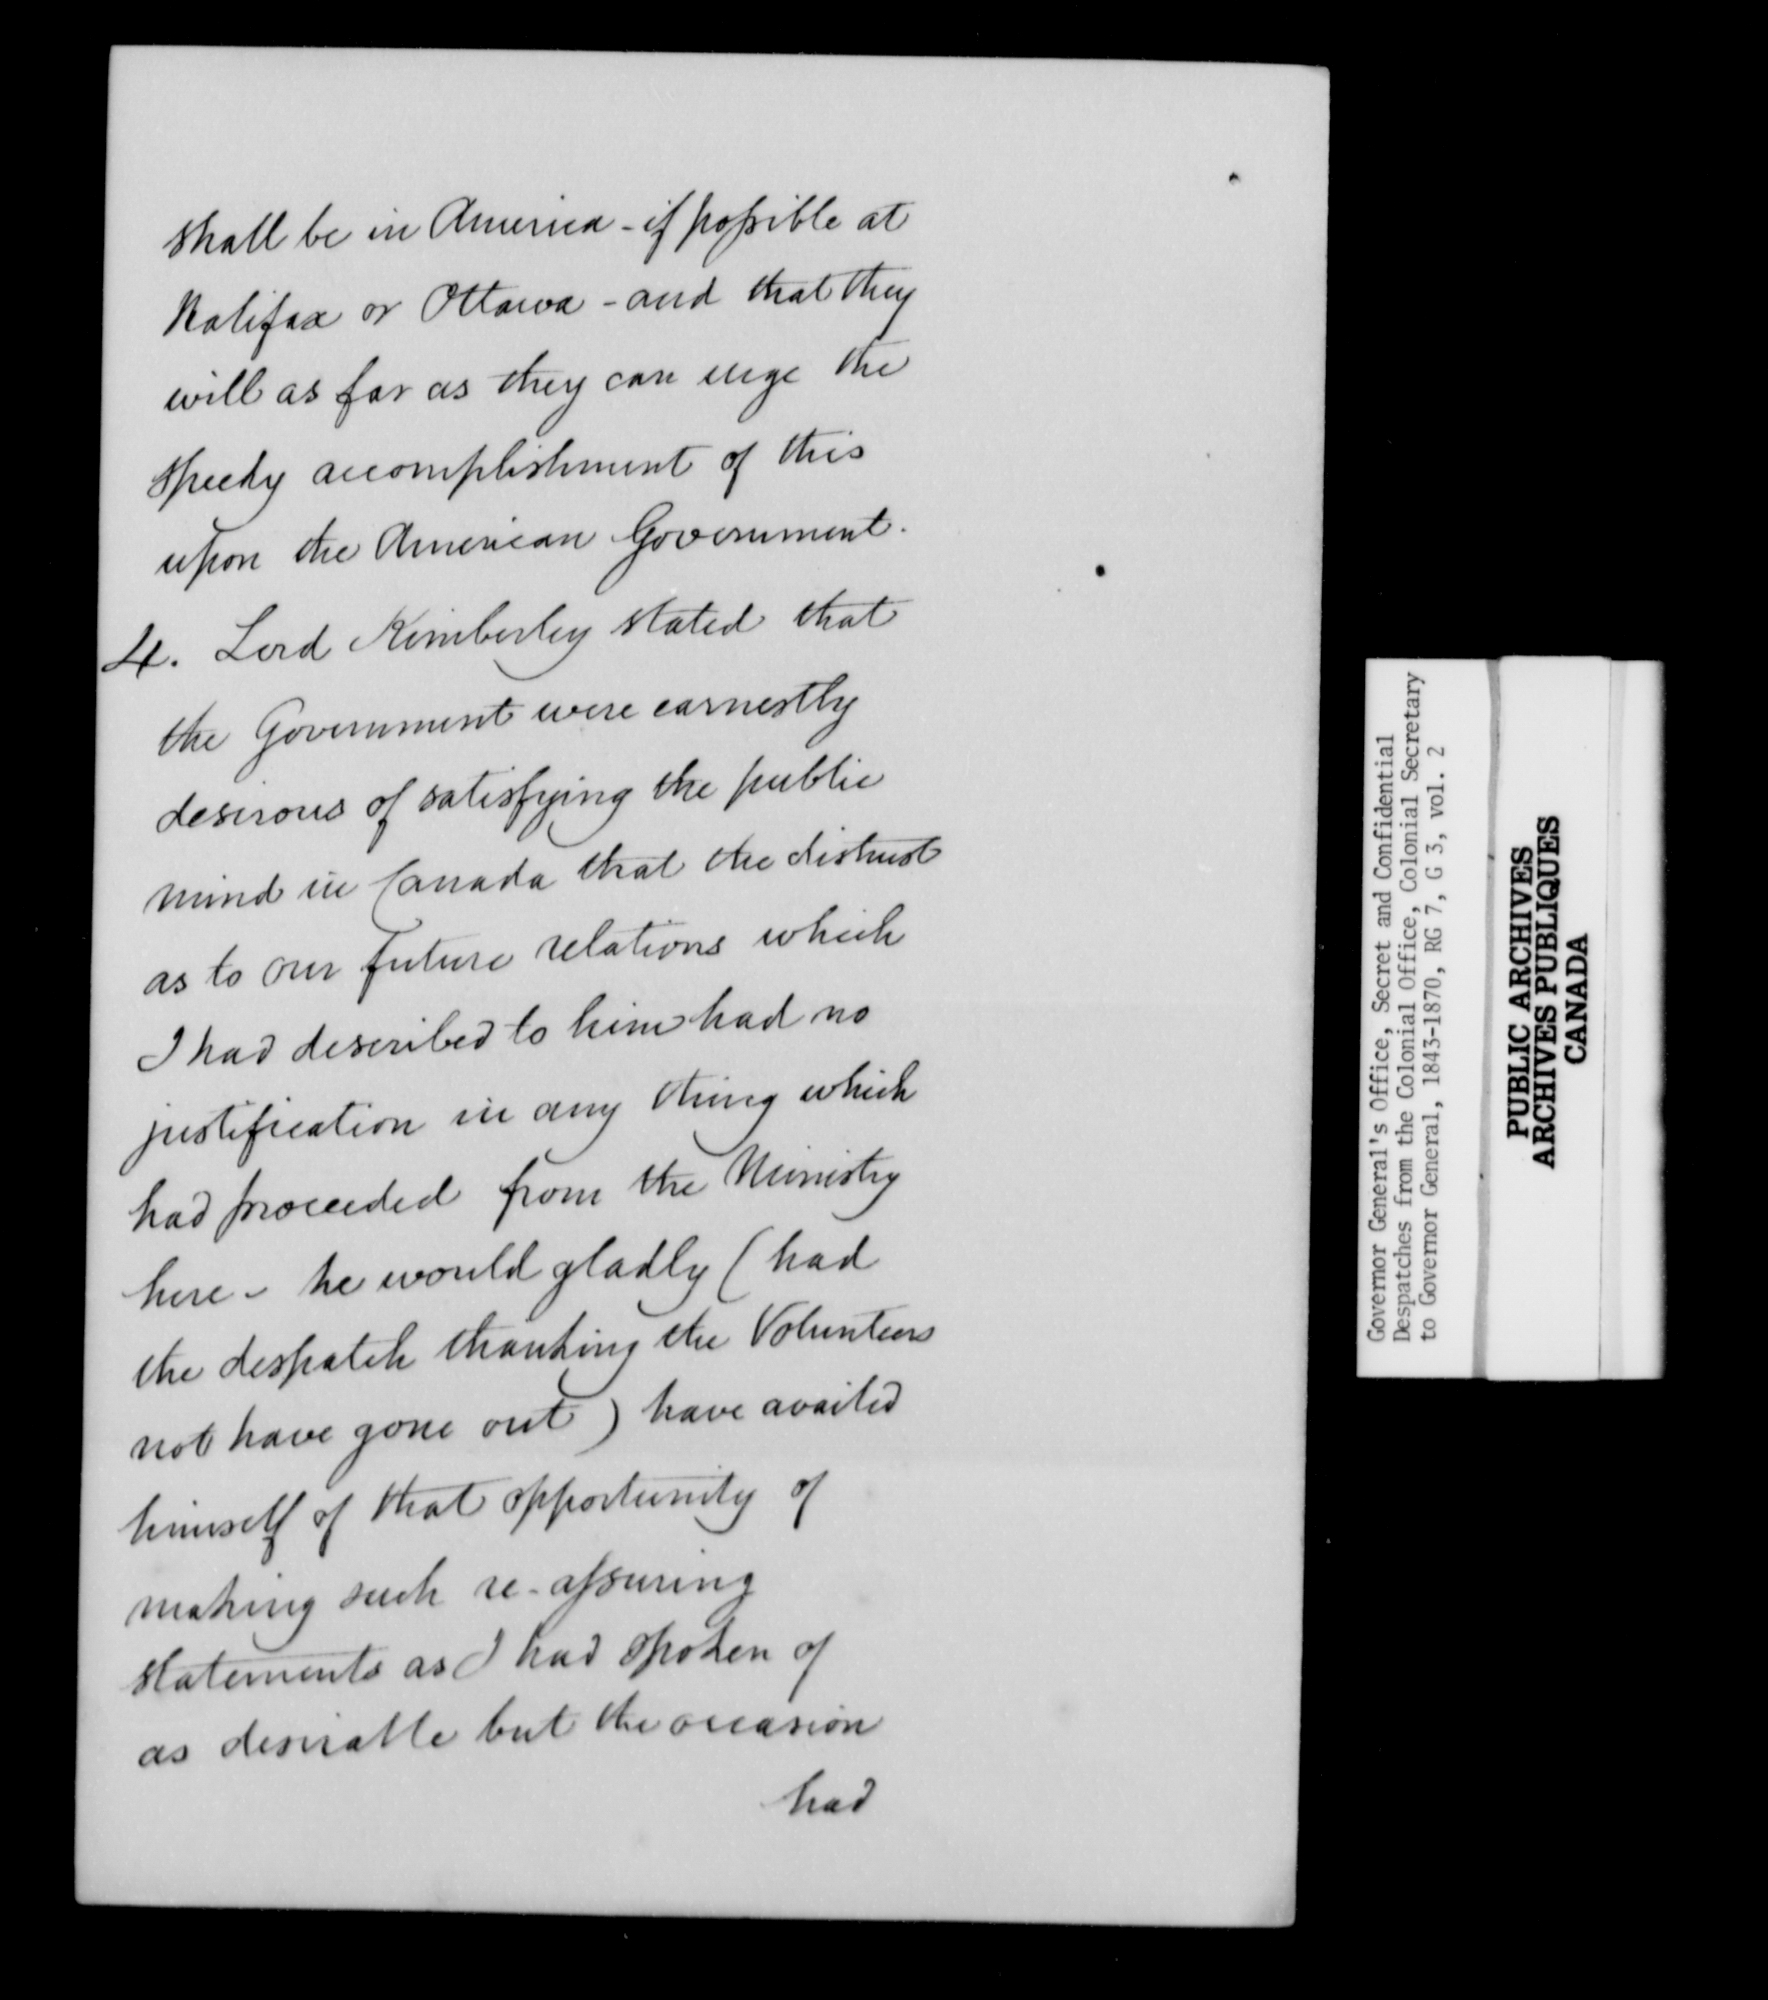 shall be in America - if possible at
Halifax or Ottawa - and that they
will as far as they can urge the
speedy accomplishment of this
upon the American Government.
4. Lord Kimberley stated that
the Government were earnestly
desirous of satisfying the public
mind in Canada that the distrust
as to our future relations which
I had described to him had no
justification in any thing which
had proceeded from the Ministry
here - he would gladly (had
the despatch thanking the Volunteers
not have gone out) have availed
himself of that opportunity of
making such re-assuring
statements as I had spoken of
as desirable but the occasion
had
Governor General's Office, Secret and Confidential
Despatches from the Colonial Office, Colonial Secretary
to Governor General, 1843-1870, RG 7, G 3, vol. 2
PUBLIC ARCHIVES
ARCHIVES PUBLIQUES
CANADA